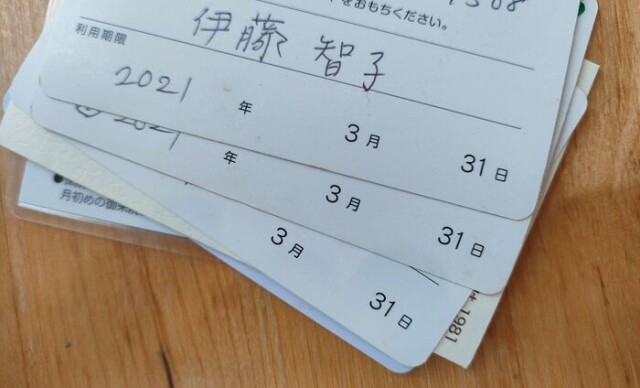 をおもちください。
伊藤 智子
利用期限
2021 年 3月 31日
2021 年 3月 31日
3月 31日
月初めの御来院
1981